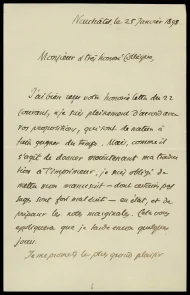 Neuchâtel, le 25 Janvier 1898
Monsieur & très honoré Collègue,
J'ai bien reçu votre honorée lettre du 22
courant, & je suis pleinement d'accord avec
vos propositions, qui sont de nature à
faire gagner du temps. Mais, comme il
s'agit de donner maintenant ma traduc
tion à l'imprimeur, je suis obligé de
mettre mon manuscrit – dont certaines pas
sages sont fort mal écrits – en état, et de
préparer les notes marginales. Cela vous
expliquera que je tarde encore quelques
jours.
Je me promets le plus grand plaisir